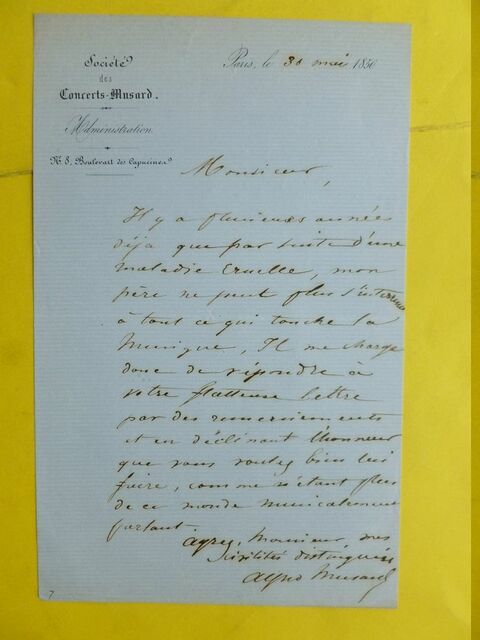 Société
des
Concerts-Musard.
Administration
N. 8, Boulevart des Capucines
Paris, le 30 mai 1856
Monsieur,
Il y a plusieurs années
déjà que par suite d'une
maladie cruelle, mon
père ne peut plus s'intéresser
à tout ce qui touche la
musique, Il me charge
donc de répondre à
votre flatteuse lettre
par des remerciements
et en déclinant l'honneur
que vous voulez bien lui
faire, comme n'étant plus
de ce monde musicalement
parlant.
agréez, Monsieur, mes
civilités distinguées
Alfred Musard
7